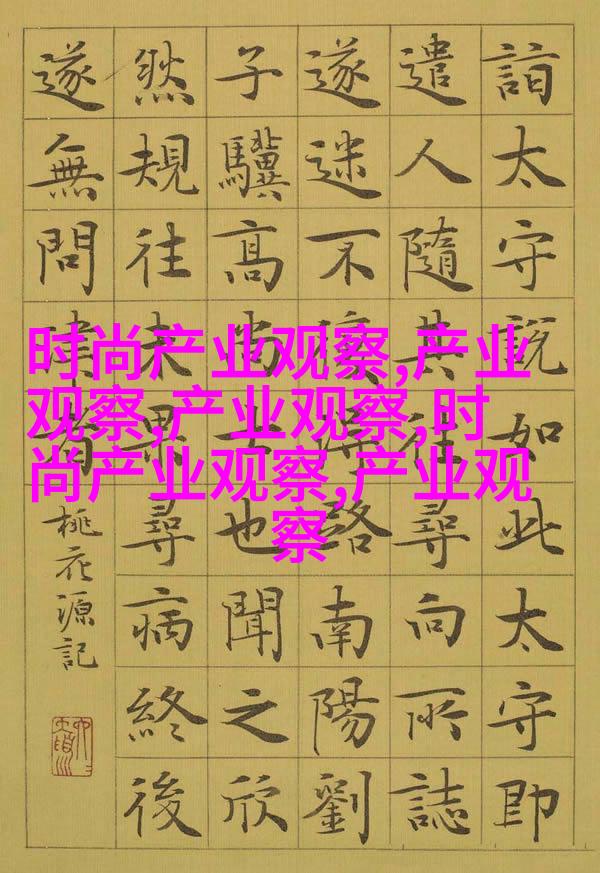 时尚产业观察,产业
观察,产业观察,时
尚产业观察,产业观
察
詣太守說如此太守即
遣人隨其往尋向所誌
遂迷不復得路南陽劉
子驥高尚士也聞之欣
然規往未果尋病終後
遂無問津者
桃花源記